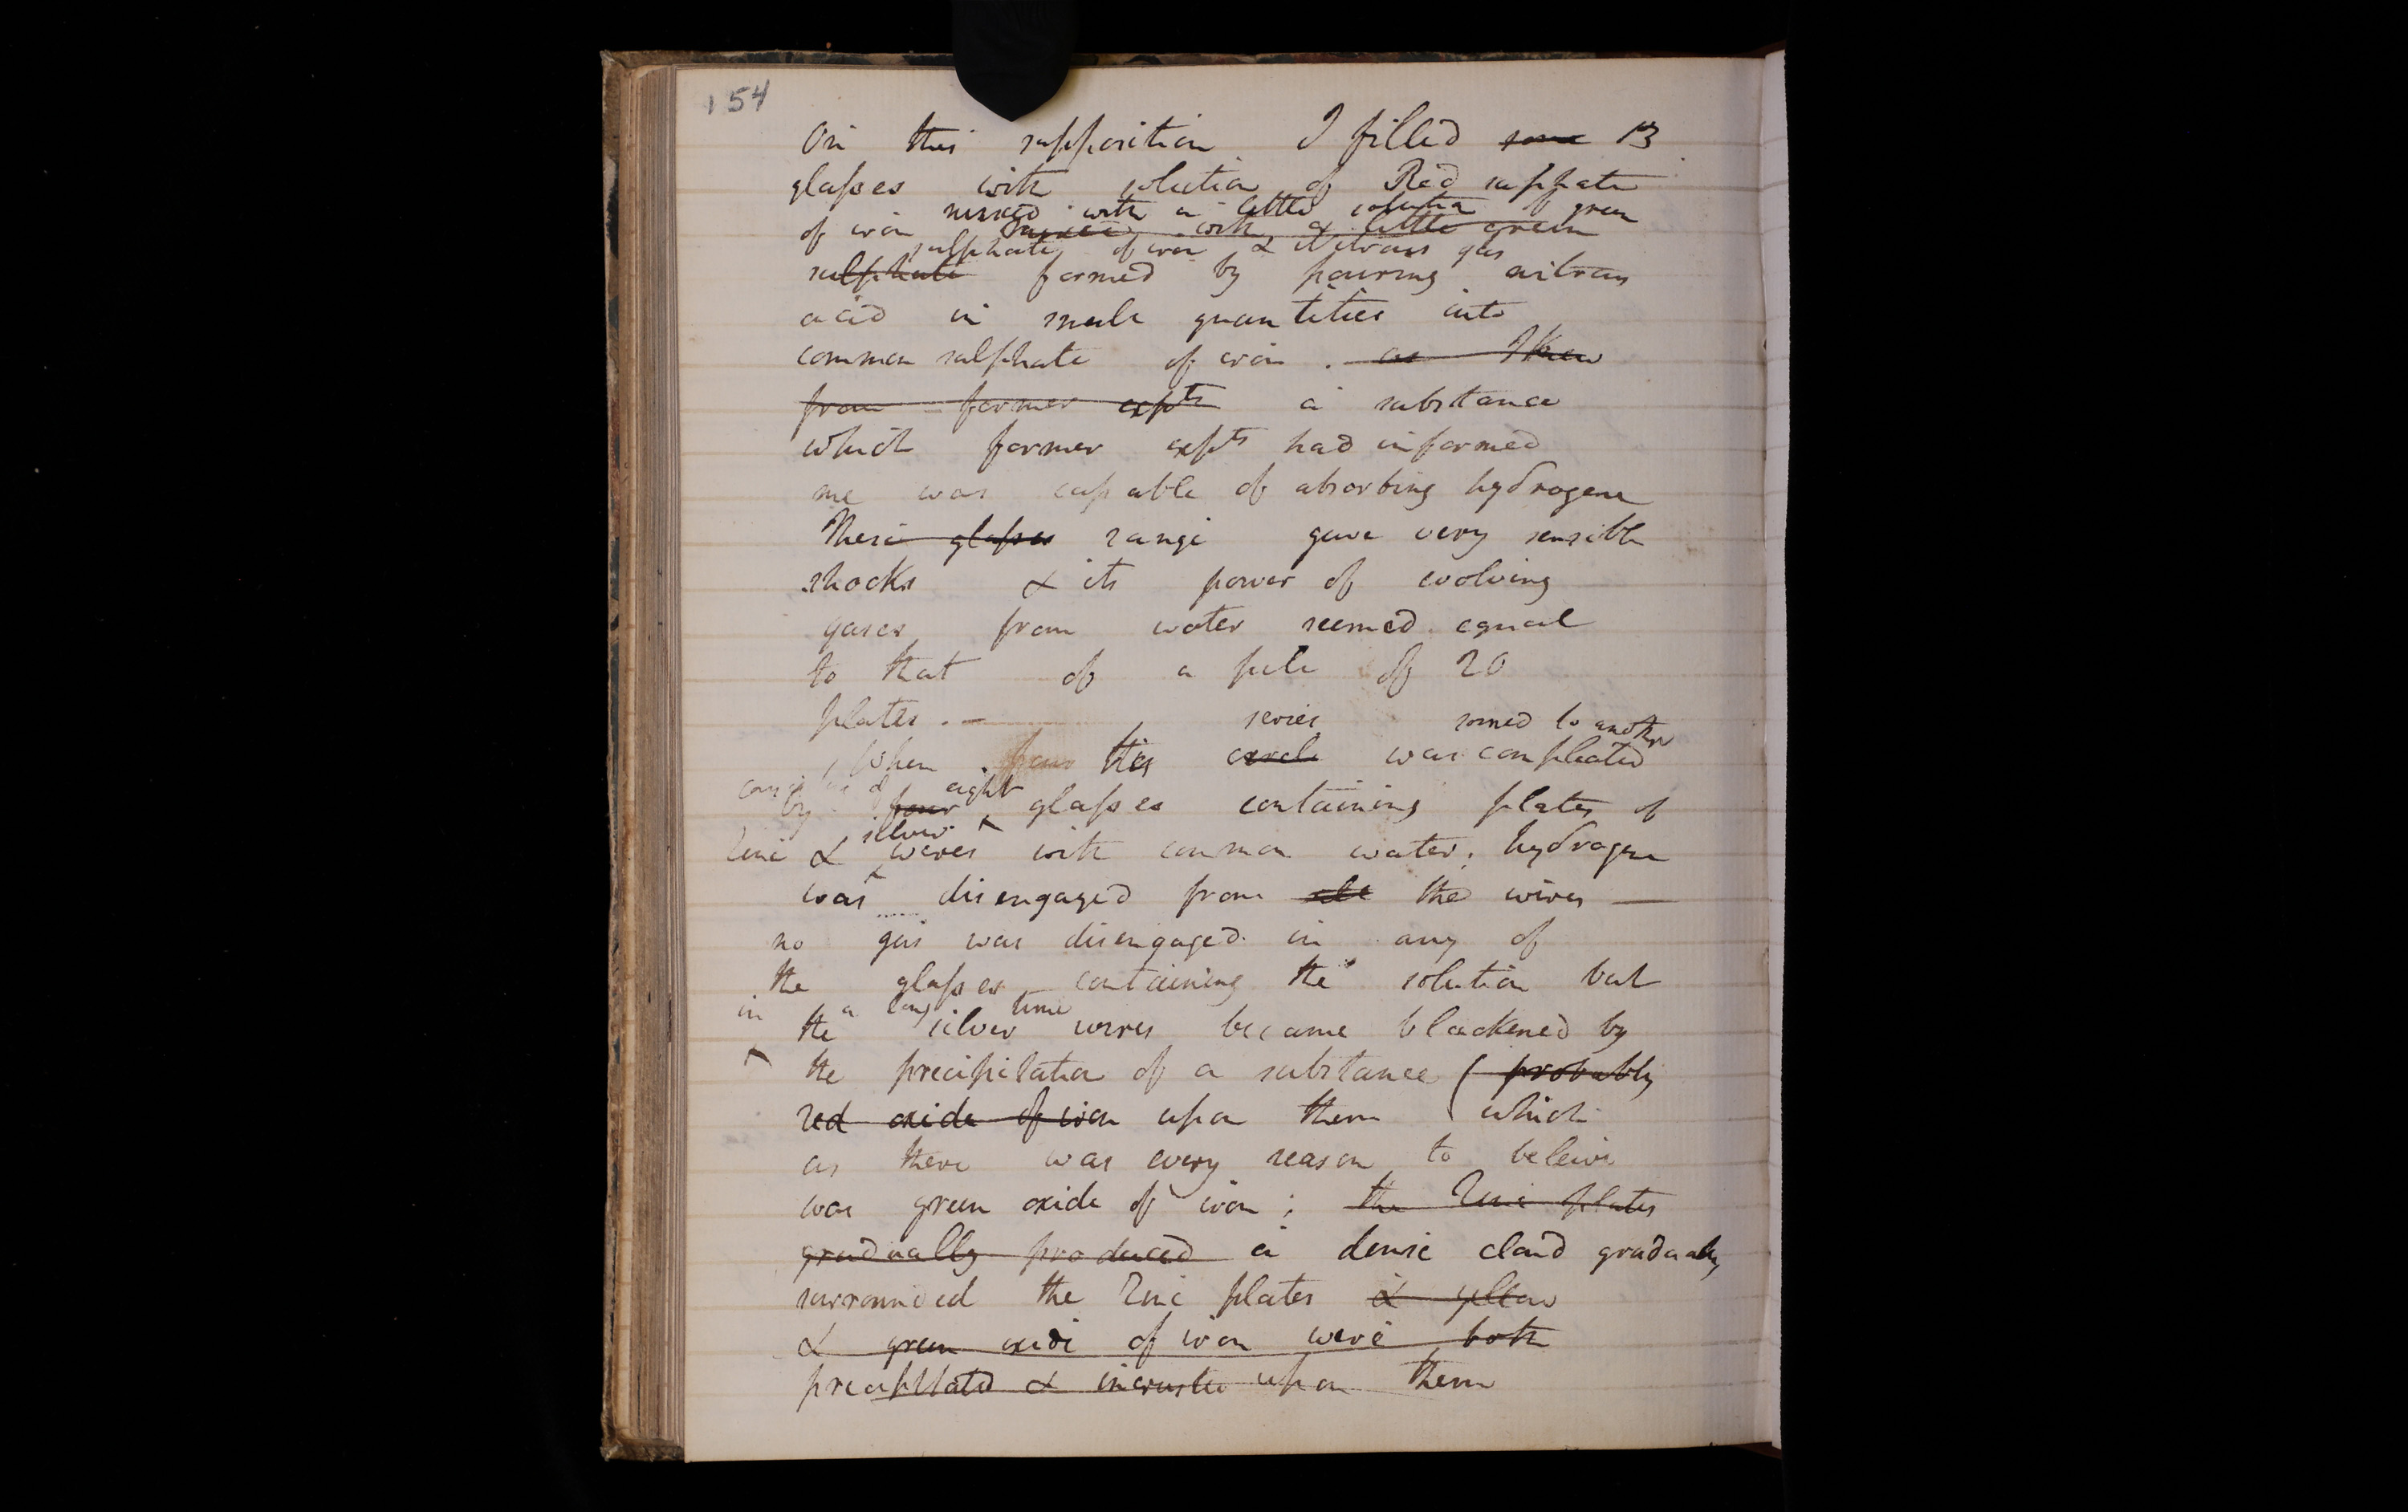 154
On this supposition I filled some 13
glasses with solution of Red sulphate
mixed with a little solution of green
of iron mixed with a little green
sulphate of iron & Nitrous gas
sulphate formed by pouring nitrous
acid in small quantities into
common sulphate of iron . as I knew
from former expts a substance
which former expts had informed
me was capable of absorbing hydrogene
These glasses range gave very sensible
shocks & its power of evolving
gases from water seemed equal
to that of a pile of 20
plates . –
series joined to another
When four this circle was compleated
eight
by four glasses containing plates of
silver
Zinc & wires with common water; hydrogene
was disengaged from all the wires —
no gas was disengaged in any of
the glasses containing the solution but
in a long time
the silver wires became blackened by
the precipitation of a substance ( probably
red oxide of iron upon them ( which
as there was every reason to beleive
was green oxide of iron ; the Zinc plates
gradually produced a dense cloud gradually
surrounded the Zinc plates & yellow
& green oxide of iron were both
precipitated & incrusted upon them